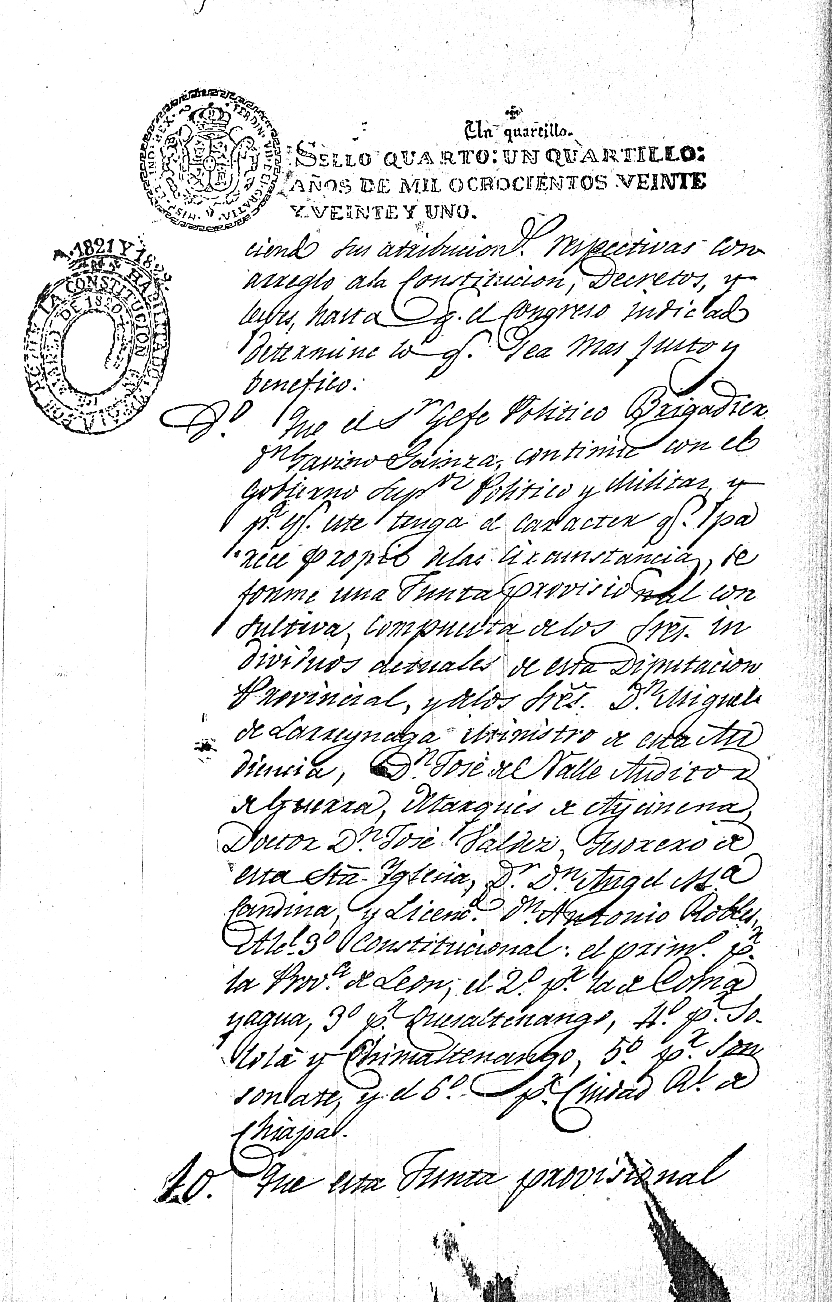 Un quartillo.
SELLO QUARTO: UN QUARTILLO:
AÑOS DE MIL OCROCIENTOS VEINTE
Y VEINTE Y UNO.
FERDIN. VII D. EI. GRATIA. HISP. ET IND. REX.
A. 1821 Y 1822
HABILITADO
POR LA CONSTITUCION EN
DE MARZO DE 1820
ciend sus atribucion.s respectivas con
arreglo ala Constitucion, Decretos, y
leyes, hasta q.e el Congreso indicad
determine lo q.e sea mas justo y
benefico:
9.º Que el S.r Gefe Politico Brigadier
D.n Gavino Gainza, continue con el
Gobierno Sup.or Politico y Militar, y
p.a q.e este tenga el caracter q.e pa
rece propio delas circunstancia, se
forme una Junta provisional con
sultiva, compuesta delos Sres. in
dividuos actuales de esta Diputacion
Provincial, y delos Sres. D.n Miguel
de Larreynaga Ministro de esta Au
diencia, D.n José del Valle Auditor
de Guerra, Marques de Aycinena,
Doctor D.n José Valdez, Tesorero de
esta Sta. Yglesia, D.r D.n Angel M.a
Candina, y Licenc.d D.n Antonio Robles,
Alc.l 3.º Constitucional: el prim.o p.r
la Prov.a de Leon, el 2.º p.r la de Coma
yagua, 3.º p.r Quesaltenango, 4.º p.r So-
lolá y Chimaltenango, 5.º p.r Son
sonate, y el 6.º p.r Ciudad R.l de
Chiapa.
10. Que esta Junta provisional